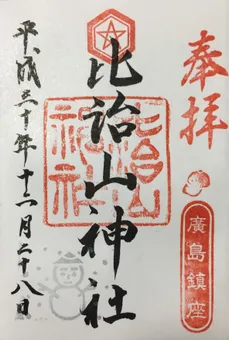 奉拝
廣島鎮座
比治山神社
比治山神社
平成三十年十二月二十八日